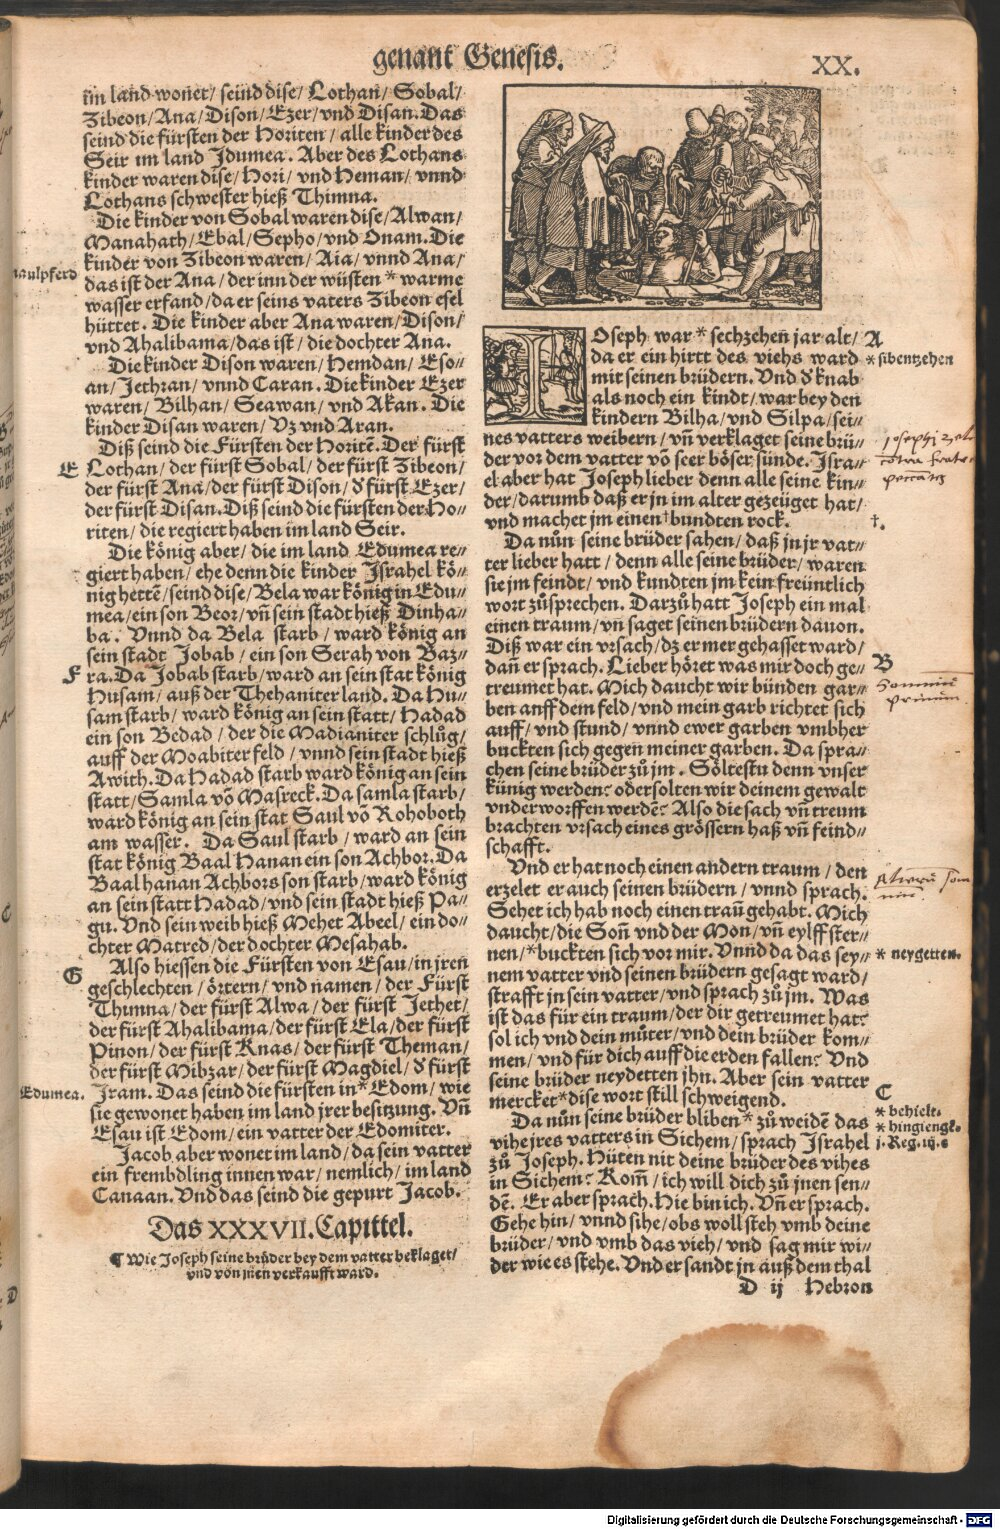 genant Genesis.
XX.
im land wonet/ seind dise/ Lothan/ Sobal/
Zibeon/ Ana/ Dison/ Ezer/ vnd Disan. Das
seind die fürsten der Horiten/ alle kinder des
Seir im land Idumea. Aber des Lothans
kinder waren dise/ Hori/ vnd Heman/ vnnd
Lothans schwester hieß Thimna.
Die kinder von Sobal waren dise/ Alwan/
Manahath/ Ebal/ Sepho/ vnd Onam. Die
kinder von Zibeon waren/ Aia/ vnnd Ana/
das ist der Ana/ der inn der wüsten * warme
wasser erfand/ da er seins vaters Zibeon esel
hüttet. Die kinder aber Ana waren/ Dison/
vnd Ahalibama/ das ist/ die dochter Ana.
Die kinder Dison waren/ Hemdan/ Eso⸗
an/ Jethran/ vnnd Caran. Die kinder Ezer
waren/ Bilhan/ Seawan/ vnd Akan. Die
kinder Disan waren/ Vz vnd Aran.
Diß seind die Fürsten der Horitē. Der fürst
E Lothan/ der fürst Sobal/ der fürst Zibeon/
der fürst Ana/ der fürst Dison/ d̓ fürst Ezer/
der fürst Disan. Diß seind die fürsten der Ho⸗
riten/ die regiert haben im land Seir.
Die könig aber/ die im land Edumea re⸗
giert haben/ ehe denn die kinder Israhel kö⸗
nig hettē/ seind dise/ Bela war könig in Edu⸗
mea/ ein son Beor/ vñ sein stadt hieß Dinha⸗
ba. Vnnd da Bela starb/ ward könig an
sein stadt Jobab/ ein son Serah von Baz⸗
F ra. Da Jobab starb/ ward an sein stat könig
Husam/ auß der Thehaniter land. Da Hu⸗
sam starb/ ward könig an sein statt/ Hadad
ein son Bedad/ der die Madianiter schlůg/
auff der Moabiter feld/ vnnd sein stadt hieß
Awith. Da Hadad starb ward könig an sein
statt/ Samla võ Masreck. Da samla starb/
ward könig an sein stat Saul võ Rohoboth
am wasser. Da Saul starb/ ward an sein
stat könig Baal Hanan ein son Achbor. Da
Baal hanan Achbors son starb/ ward könig
an sein statt Hadad/ vnd sein stadt hieß Pa⸗
gu. Vnd sein weib hieß Mehet Abeel/ ein do⸗
chter Matred/ der dochter Mesahab.
G Also hiessen die Fürsten von Esau/ in jren
geschlechten/ örtern/ vnd namen/ der Fürst
Thimna/ der fürst Alwa/ der fürst Jethet/
der fürst Ahalibama/ der fürst Ela/ der fürst
Pinon/ der fürst Knas/ der fürst Theman/
der fürst Mibzar/ der fürst Magdiel/ d̓ fürst
Edumea. Jram. Das seind die fürsten in * Edom/ wie
sie gewonet haben im land jrer besitzung. Vñ
Esau ist Edom/ ein vatter der Edomiter.
Jacob aber wonet im land/ da sein vatter
ein frembdling innen war/ nemlich/ im land
Canaan. Vnd das seind die gepurt Jacob.
Das XXXVII. Capittel.
¶ Wie Joseph seine brüder bey dem vatter beklaget/
vnd von jnen verkaufft ward.
IOseph war * sechzehen̄ jar alt/ A
da er ein hirtt des viehs ward * sibentzehen
mit seinen brüdern. Vnd d̓ knab
als noch ein kindt/ war bey den
kindern Bilha/ vnd Silpa/ sei⸗
nes vatters weibern/ vñ verklaget seine brü⸗
der vor dem vatter võ seer böser sünde. Isra⸗
el aber hat Joseph lieber denn alle seine kin⸗
der/ darumb daß er jn im alter gezeüget hat/
vnd machet jm einen † bundten rock. †.
Da nůn seine brüder sahen/ daß jn jr vat⸗
ter lieber hatt/ denn alle seine brüder/ waren
sie jm feindt/ vnd kundten jm kein freüntlich
wort zůsprechen. Darzů hatt Joseph ein mal
einen traum/ vñ saget seinen brüdern dauon.
Diß war ein vrsach/ dz er mer gehasset ward/
dañ er sprach. Lieber höret was mir doch ge⸗ B
treumet hat. Mich daucht wir bünden gar⸗
ben auff dem feld/ vnd mein garb richtet sich
auff/ vnd stund/ vnnd ewer garben vmbher
buckten sich gegen meiner garben. Da spra⸗
chen seine brüder zů jm. Söltestu denn vnser
künig werden? oder solten wir deinem gewalt
vnderworffen werdē? Also die sach vñ treum
brachten vrsach eines grössern haß vñ feind⸗
schafft.
Vnd er hat noch einen andern traum/ den
erzelet er auch seinen brüdern/ vnnd sprach.
Sehet ich hab noch einen traū gehabt. Mich
daucht/ die Soñ vnd der Mon/ vñ eylff ster⸗
nen/ * buckten sich vor mir. Vnnd da das sey⸗ * neygetten.
nem vatter vnd seinen brüdern gesagt ward/
strafft jn sein vatter/ vnd sprach zů jm. Was
ist das für ein traum/ der dir getreumet hat?
sol ich vnd dein můter/ vnd dein brüder kom⸗
men/ vnd für dich auff die erden fallen? Vnd
seine brüder neydetten jhn. Aber sein vatter
mercket * dise wort still schweigend. C
* behielt.
Da nůn seine brüder bliben * zů weidē das * hingiengē.
vihe jres vatters in Sichem/ sprach Israhel j. Reg. iij. c
zů Joseph. Hüten nit deine brüder des vihes
in Sichem? Kom̄/ ich will dich zů jnen sen⸗
dē. Er aber sprach. Hie bin ich. Vñ er sprach.
Gehe hin/ vnnd sihe/ obs woll steh vmb deine
brüder/ vnd vmb das vieh/ vnd sag mir wi⸗
der wie es stehe. Vnd er sandt jn auß dem thal
D ij Hebron
Somniū
primum
Digitalisierung gefördert durch die Deutsche Forschungsgemeinschaft - DFG